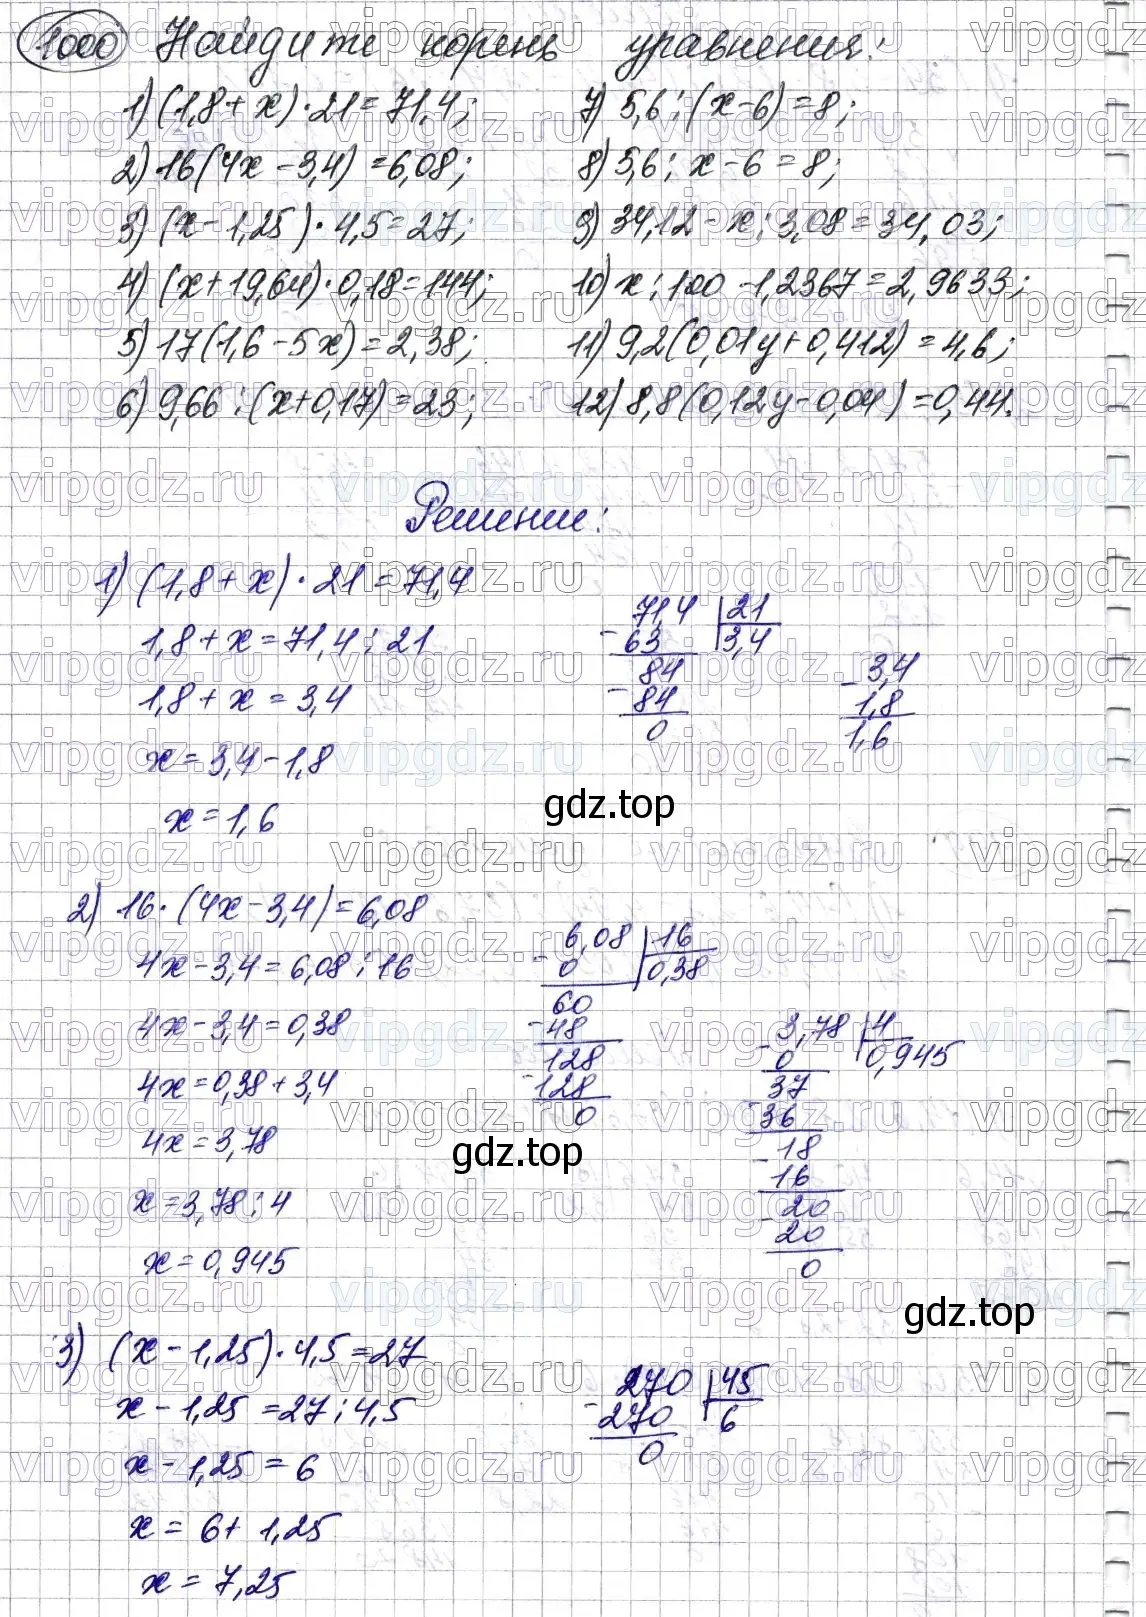 1000 Найдите корень уравнения:
1) (1,8+x)·21=71,4; 7) 5,6:(x-6)=8;
2) 16(4x-3,4)=6,08; 8) 5,6:x-6=8;
3) (x-1,25)·4,5=27; 9) 34,12-x:3,08=34,03;
4) (x+19,64)·0,18=144; 10) x:100-1,2367=2,9633;
5) 17(1,6-5x)=2,38; 11) 9,2(0,01y+0,412)=4,6;
6) 9,66:(x+0,17)=23; 12) 8,8(0,12y-0,04)=0,44.
Решение:
1) (1,8+x)·21=71,4
1,8+x=71,4:21
1,8+x=3,4
x=3,4-1,8
x=1,6
71,4 21
-63 3,4
84
-84
0
-3,4
1,8
1,6
gdz.top
2) 16·(4x-3,4)=6,08
4x-3,4=6,08:16
4x-3,4=0,38
4x=0,38+3,4
4x=3,78
x=3,78:4
x=0,945
-6,08 16
0 0,38
60
-48
128
-128
0
-3,78 4
0 0,945
37
-36
-18
16
-20
20
0
gdz.top
gdz.top
3) (x-1,25)·4,5=27
x-1,25=27:4,5
x-1,25=6
x=6+1,25
x=7,25
-270 45
270 6
0
vipgdz.ru